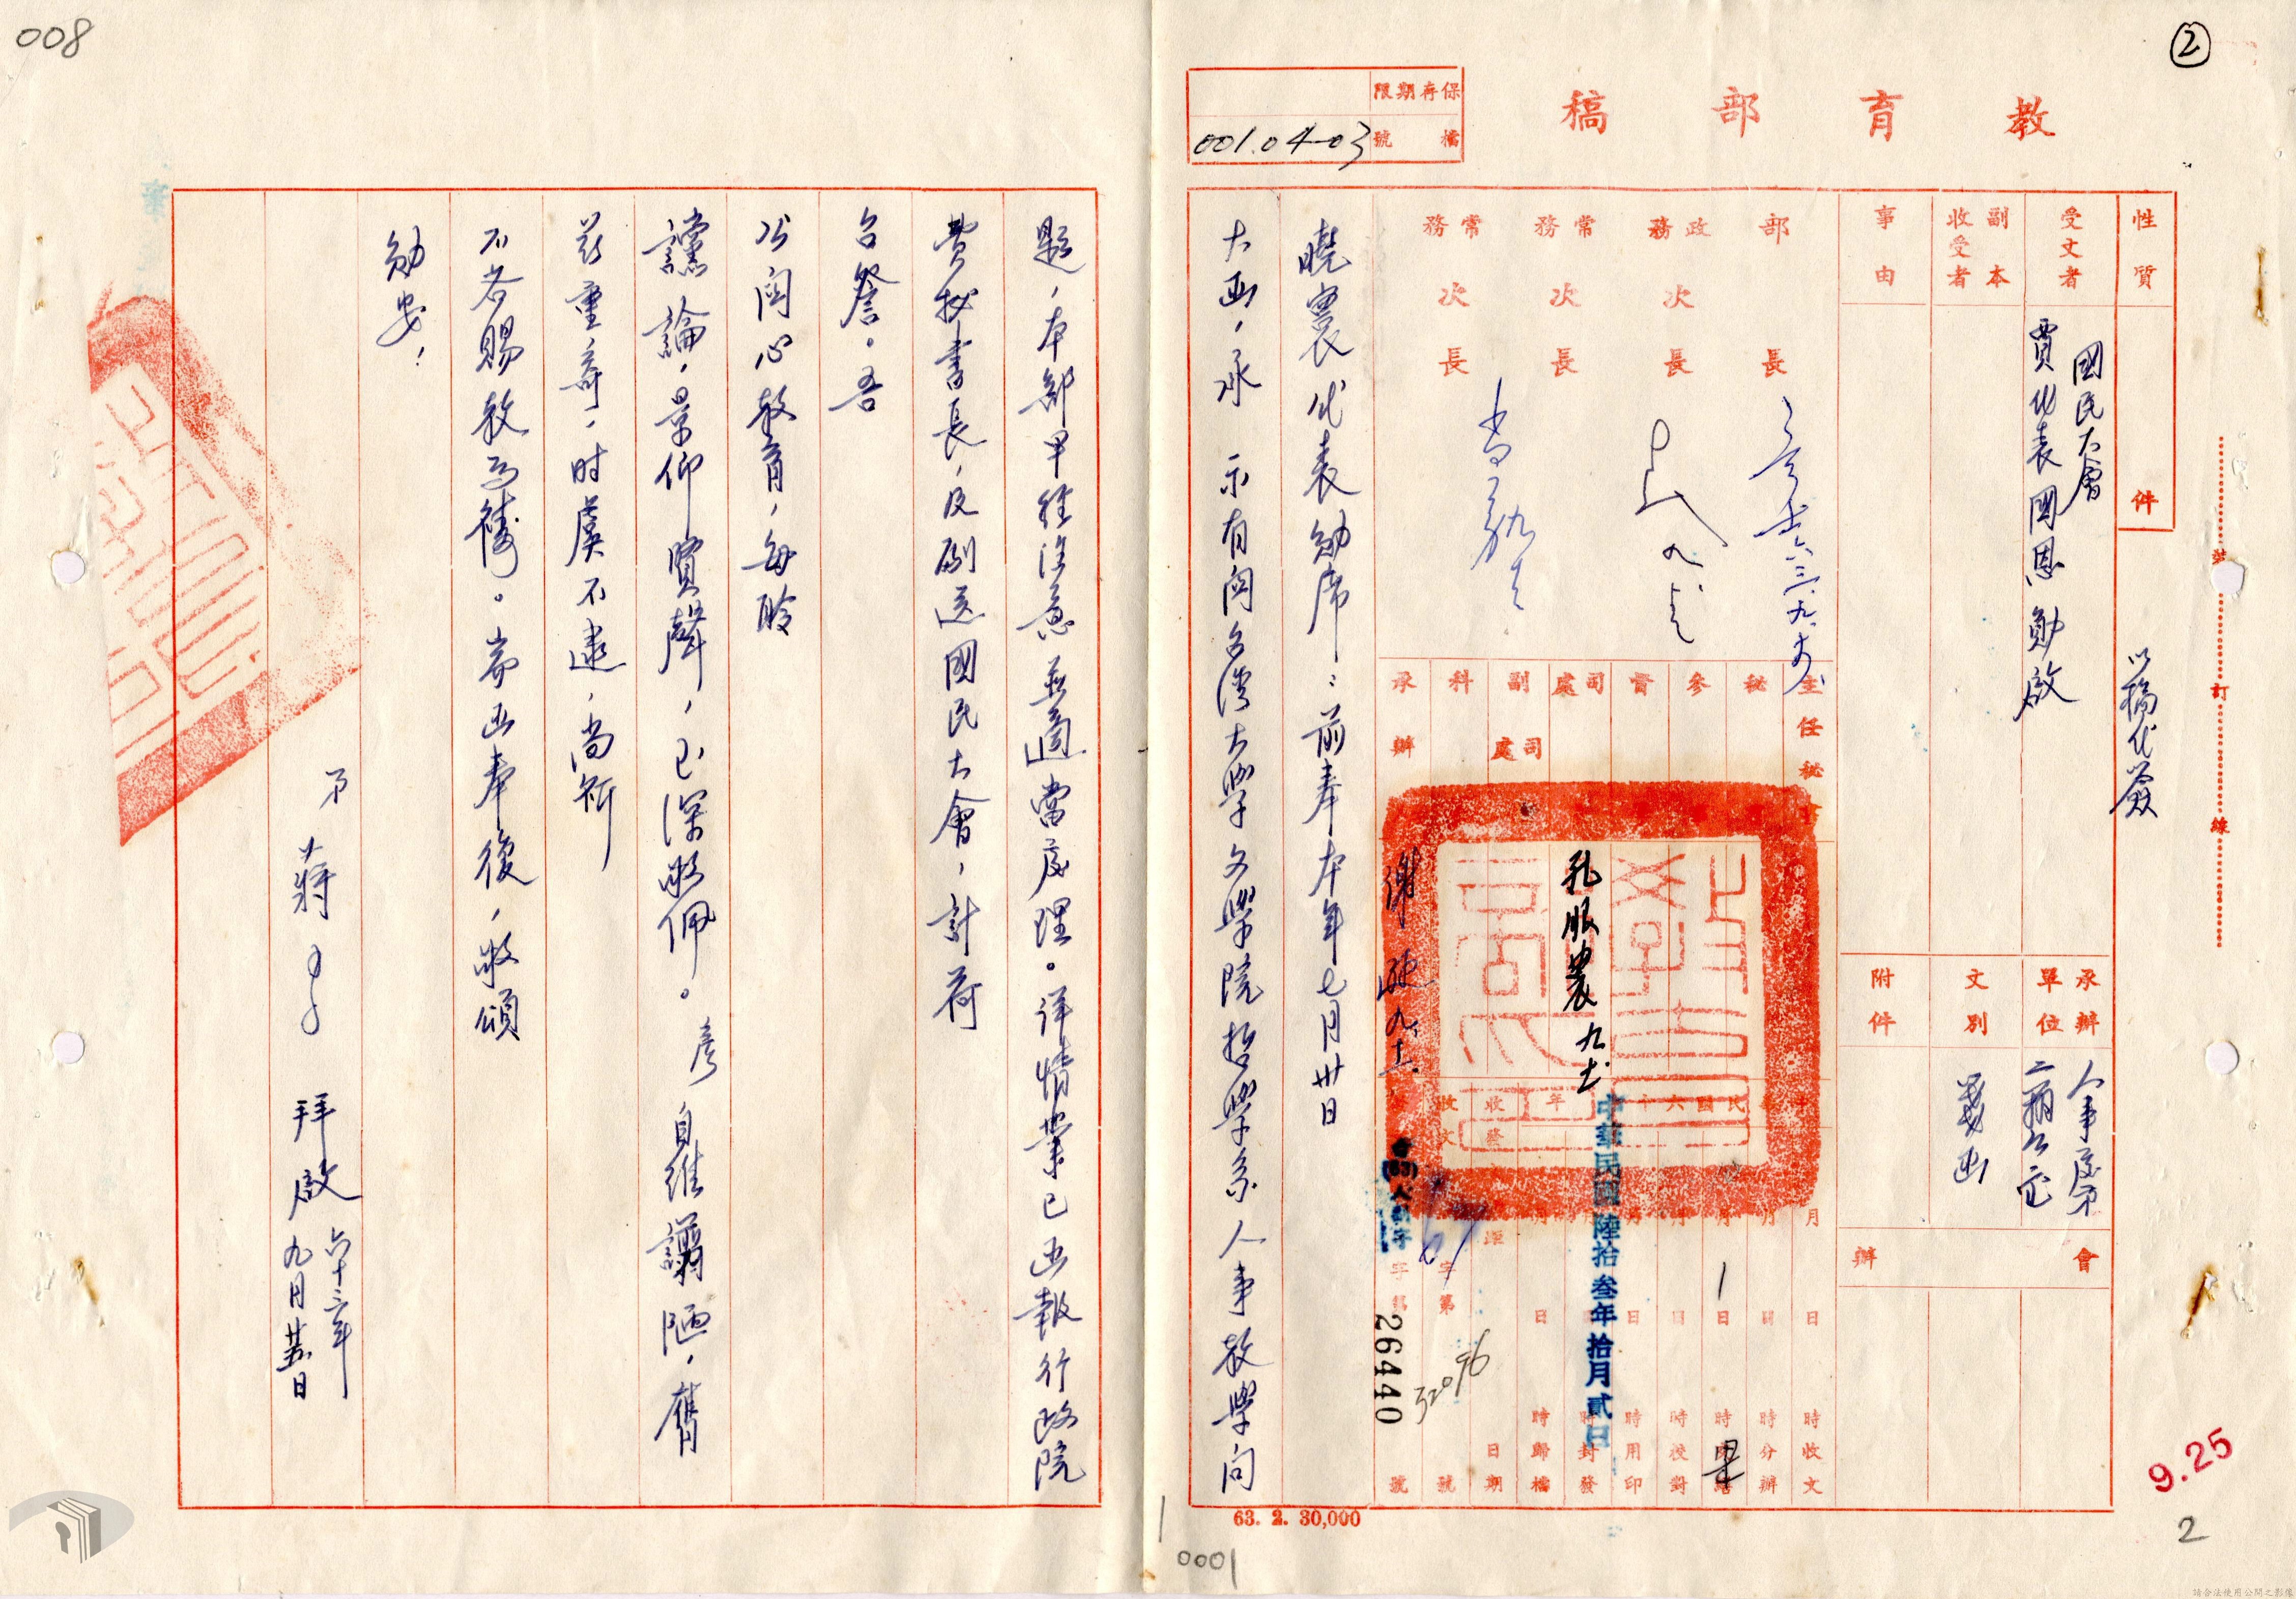 008
②
教育部稿
保存期限
檔號
001.04-03
性質
件
受文者
國民大會
賈代表國恩勛啟
以稿代簽
副本收受者
事由
承辦單位
人事處第
文別
箋函
附件
會辦
部長
政務次長
常務次長
常務次長
六三、九、
主任秘書
秘
參
督
司處
副司處
科
承辦
孔服農
中華民國陸拾叁年拾月貳日
26440
32096
時收文
時分辦
時校對
時用印
時封發
時歸檔
日期
號
號
裝
訂
線
曉襄代表勛席:前奉本年七月卅日
大函,承 示有關台灣大學文學院哲學系人事教學問
題,本部早經注意並適當處理。詳情業已函報行政院
費秘書長,及副送國民大會,計荷
台詧。吾
公關心教育,每聆
讜論,景仰賢聲,已深敬佩。彥自維譾陋,膺
茲重寄,時虞不逮,尚祈
不吝賜教為禱。耑函奉復,敬頌
勛安!
弟 蔣 拜啟
六十三年
九月廿五日
63. 2. 30,000
0001
9.25
2
請合法使用公開之影像